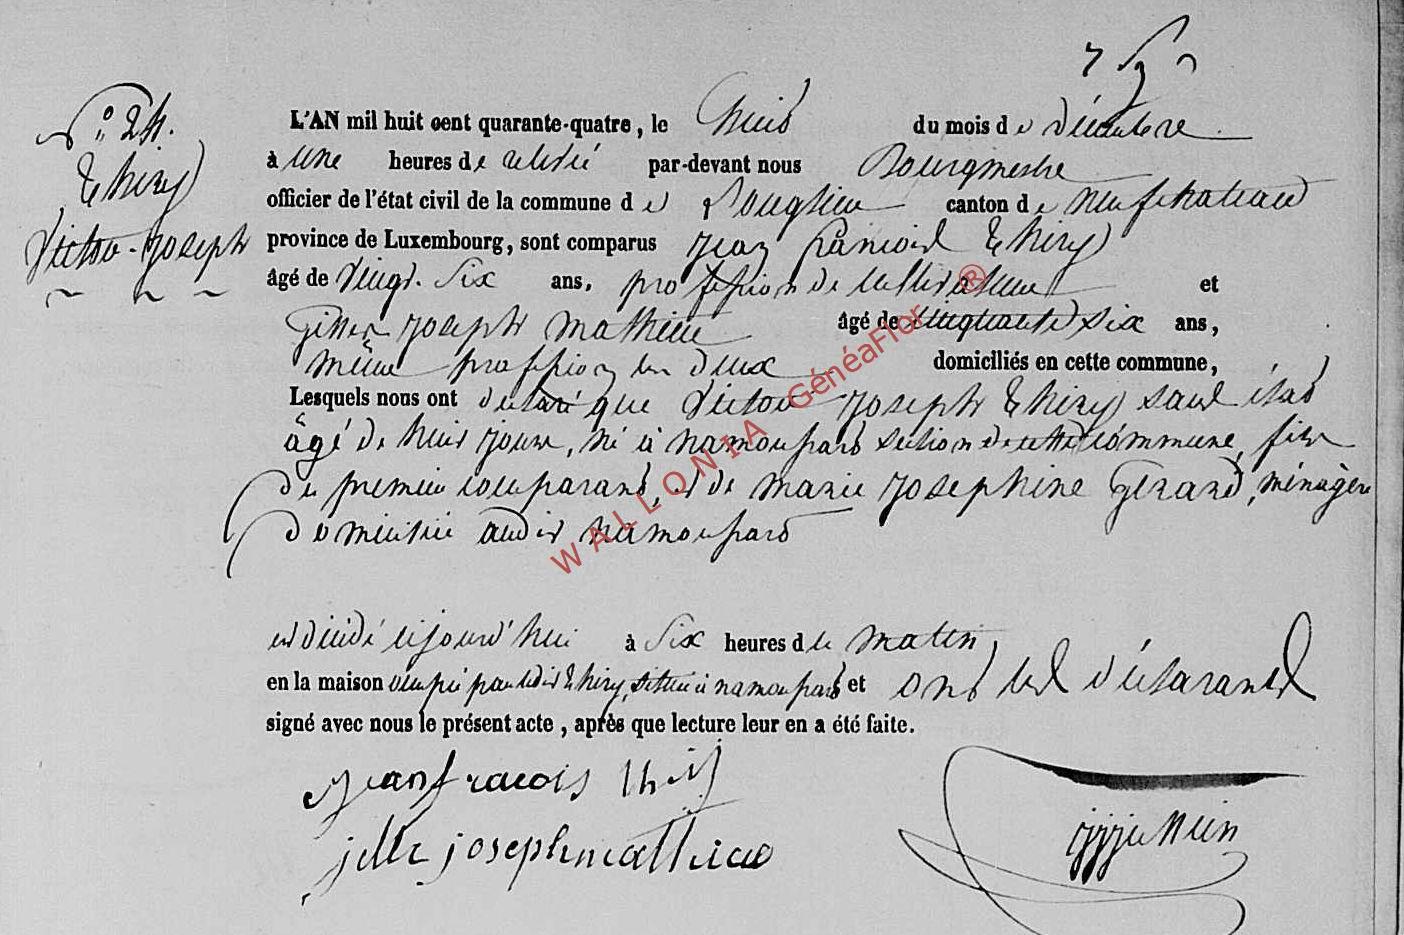 N° 24.
Thiry
Victor-Joseph
L'AN mil huit cent quarante-quatre, le huit du mois de décembre
à une heures de relevée par-devant nous Bourgmestre
officier de l'état civil de la commune de Longlier canton de neufchateau
province de Luxembourg, sont comparus Jean francois Thiry
âgé de vingt-six ans, profession de cultivateur et
Gilles Joseph Mathieu âgé de cinquante six ans,
même profession les deux domiciliés en cette commune,
Lesquels nous ont déclaré que Victor Joseph Thiry sans état
âgé de huit jours, né à namoussart section de cette commune, fils
du premier comparant, et de Marie Josephine Gérard, ménagère
domiciliée audit namoussart
est décédé cejourd'hui à six heures du matin,
en la maison occupée par ledit Thiry, située à namoussart et ont les déclarants
signé avec nous le présent acte, après que lecture leur en a été faite.
jean fracois thiry
jille joseph mathieu
WALLONIA GénéaFlor ®